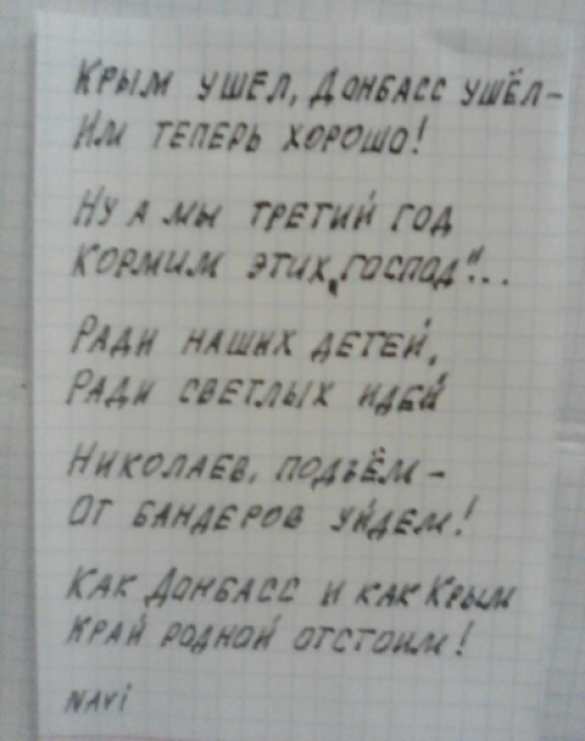 Крым ушел, Донбасс ушёл –
Им теперь хорошо!
Ну а мы третий год
кормим этих „господ“...
Ради наших детей,
Ради светлых идей
Николаев, подъём –
От бандеров уйдем!
Как Донбасс и как Крым
Край родной отстоим!
NAVi